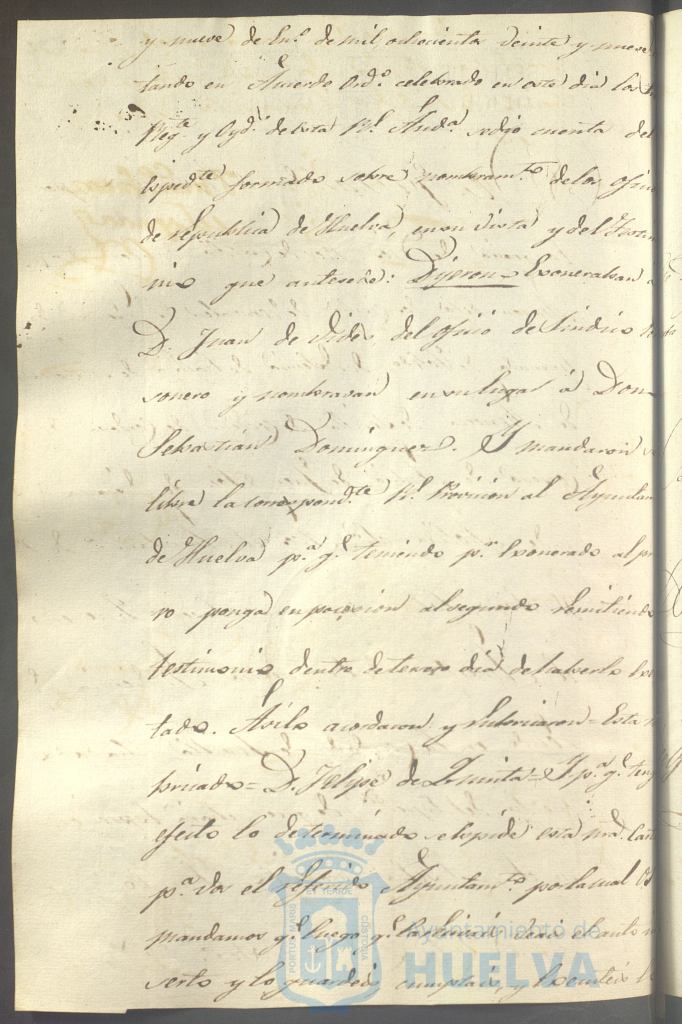 y nueve de En.º de mil ochocientos veinte y nueve
tando en Acuerdo Ord.º celebrado en este dia los
Reg.te y Oyd.s de esta R.l Aud.a se dio cuenta del
Exped.te formado sobre nombram.to de los ofici
de republica de Huelva, en su vista y del Testim
nio que antesede: Dijeron = Exoneraban a
D. Juan de del oficio de Sindico
sonero y nombravan en su lugar á Don
Sebastián Dominguez. Y mandaron
libre la correspond.te R.l Provision al Ayuntam
de Huelva p.a q.e teniendo p.r Exonerado al pr
ro ponga en posecion al segundo remitiendo
testimonio dentro de tercero dia de haberlo
tado. Asi lo acordaron y rubricaron = Esta
bricado = D. Felipe de Quinta = Y p.a q.e teng
efecto lo determinado se espide esta nra. Carta
p.a Vos el referido Ayuntam.to por la cual Os
mandamos q.e luego q.e la veais el auto
serto y lo guardeis cumplais, y Executeis
Ayuntamiento de
HUELVA